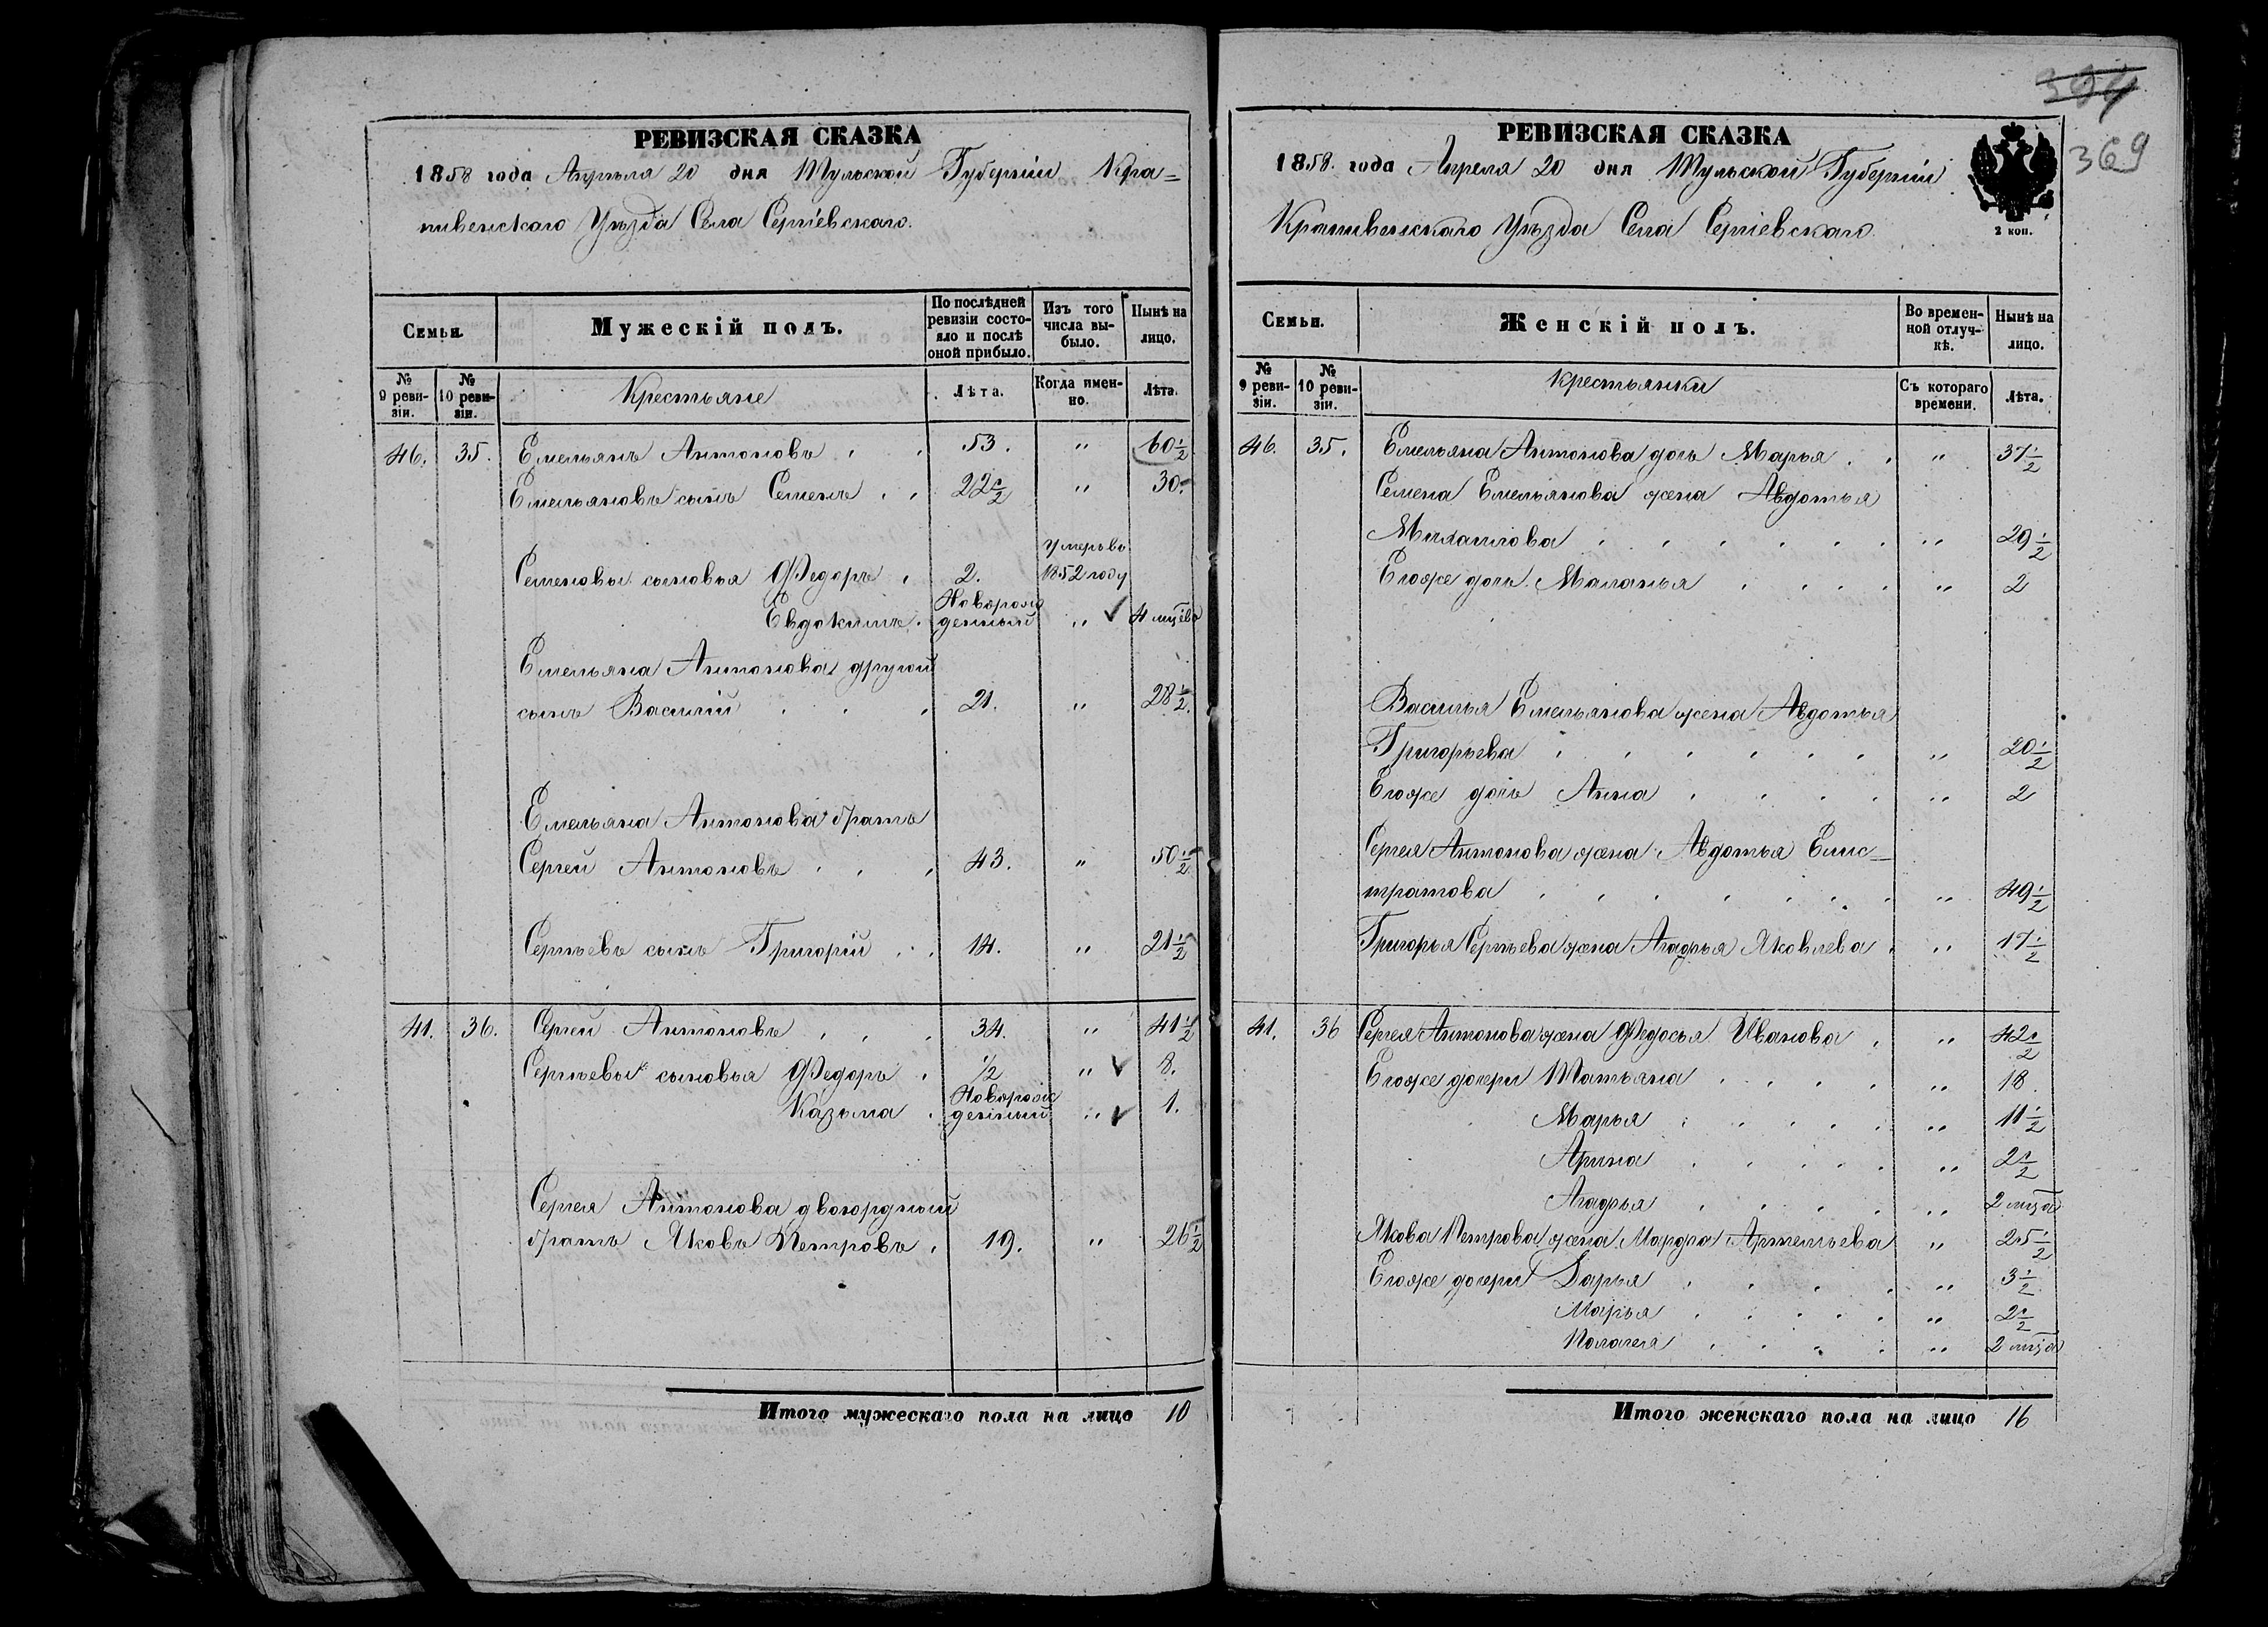 РЕВИЗСКАЯ СКАЗКА
1858 года Апрѣля 20 дня Тульской Губерніи Кра=
пивенскаго Уѣзда Села Сергіевскаго.
Семьи. Мужескій полъ. По послѣдней ревизіи состояло и послѣ оной прибыло. Изъ того числа выбыло. Нынѣ на лицо.
№ 9 ревизіи. № 10 ревизіи. Крестьяне Лѣта. Когда именно. Лѣта.
46. 35. Емельянъ Антоновъ 53. " 60½
Емельяновъ сынъ Семенъ 22½ " 30.
Умеръ въ
Семеновы сыновья Федоръ 2. 1852 году
Новорож
Евдокимъ денный " 4 мцѣва
Емельяна Антонова другой
сынъ Василій 21. " 28½.
Емельяна Антонова братъ
Сергей Антоновъ 43. " 50½
Сергѣевъ сынъ Григорій 14. " 21½
41. 36. Сергей Антоновъ 34. " 41½
Сергѣевы сыновья Федоръ ½ " 8.
Новорож
Казьма денный " 1.
Сергея Антонова двоюрдный
братъ Яковъ Петровъ 19. " 26½
Итого мужескаго пола на лицо 10
394
369
РЕВИЗСКАЯ СКАЗКА
1858. года Апреля 20 дня Тульской Губерніи
Крапивенскаго Уѣзда Села Сергіевскаго
2 коп.
Семьи. Женскій полъ. Во временной отлучкѣ. Нынѣ на лицо.
№ 9 ревизіи. № 10 ревизіи. крестьянки Съ котораго времени. Лѣта.
46. 35. Емельяна Антонова дочь Марья " 37½
Семена Емельянова жена Авдотья
Михаилова " 29½
Егоже дочь Маланья " 2
Василья Емельянова жена Авдотья
Григорьева " 20½
Егоже дочь Анна " 2
Сергея Антонова жена Авдотья Елис=
тратова " 49½
Григорья Сергѣева жена Агафья Яковлева " 17½
41. 36 Сергея Антонова жена Федосья Иванова " 42½
Егоже дочери Татьяна " 18.
Марья " 11½
Арина " 2½
Агафья " 2 мцѣа
Якова Петрова жена Марфа Артемьева " 25½
Егоже дочери Дарья " 3½
Марья " 2½
Палагея " 2 мцѣа
Итого женскаго пола на лицо 16